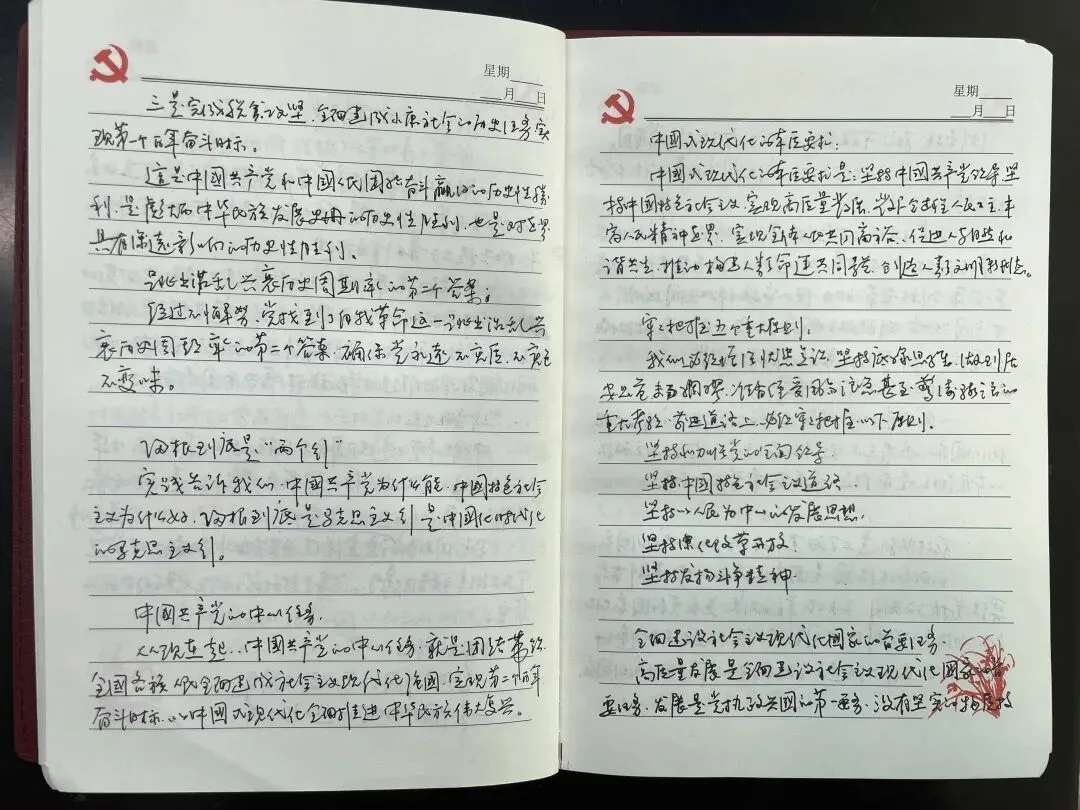 星期
月 日
三是完成脱贫攻坚、全面建成小康社会的历史任务,实
现第一个百年奋斗目标。
这是中国共产党和中国人民团结奋斗赢得的历史性胜
利,是彪炳中华民族发展史册的历史性胜利,也是对世界
具有深远影响的历史性胜利。
跳出治乱兴衰历史周期率的第二个答案:
经过不懈努力,党找到了自我革命这一跳出治乱兴
衰历史周期率的第二个答案,确保党永远不变质、不变色、
不变味。
归根到底是“两个行”
实践告诉我们,中国共产党为什么能,中国特色社会
主义为什么好,归根到底是马克思主义行,是中国化时代化
的马克思主义行。
中国共产党的中心任务。
从现在起,中国共产党的中心任务就是团结带领
全国各族人民全面建成社会主义现代化强国、实现第二个百年
奋斗目标,以中国式现代化全面推进中华民族伟大复兴。
星期
月 日
中国式现代化的本质要求:
中国式现代化的本质要求是:坚持中国共产党领导,坚
持中国特色社会主义,实现高质量发展,发展全过程人民民主,丰
富人民精神世界,实现全体人民共同富裕,促进人与自然和
谐共生,推动构建人类命运共同体,创造人类文明新形态。
牢牢把握五个重大原则。
我们必须增强忧患意识,坚持底线思维,做到居
安思危、未雨绸缪,准备经受风高浪急甚至惊涛骇浪的
重大考验。前进道路上,必须牢牢把握以下原则。
坚持和加强党的全面领导
坚持中国特色社会主义道路.
坚持以人民为中心的发展思想.
坚持深化改革开放.
坚持发扬斗争精神.
全面建设社会主义现代化国家的首要任务
高质量发展是全面建设社会主义现代化国家的首
要任务。发展是党执政兴国的第一要务。没有坚实的物质技